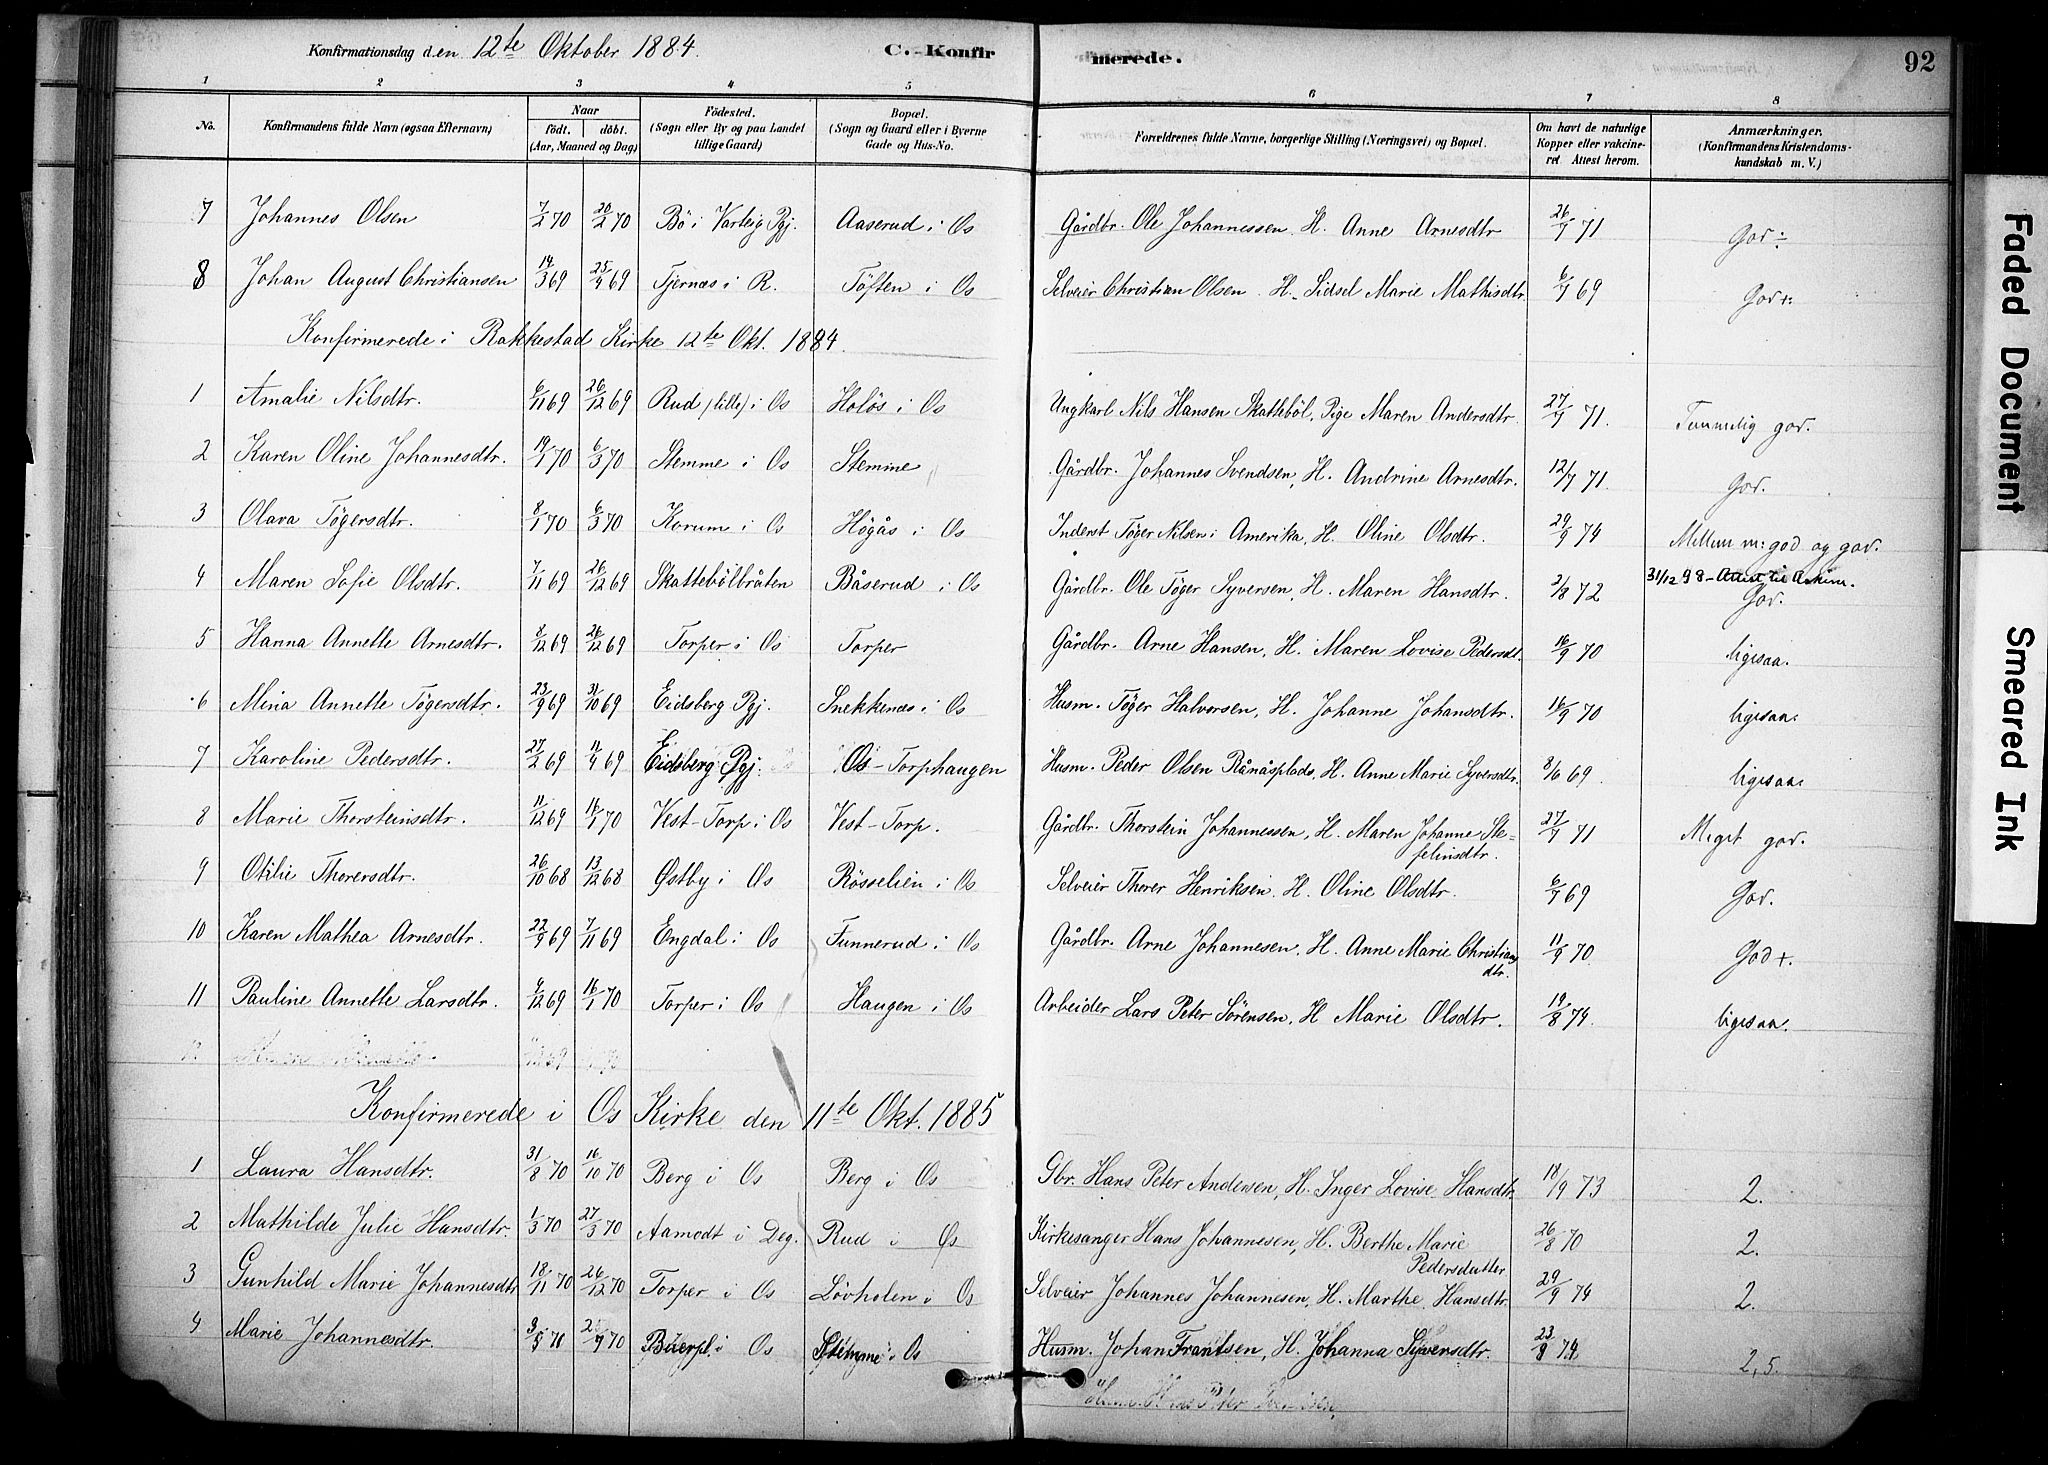 Konfirmationsdag den 12te Oktober 1884. C. - Konfir merede. 92
1 2 3 4 5 6 7 8
No. Konfirmandens fulde Navn (ogsaa Efternavn) Naar födt. döbt. (Aar, Maaned og Dag) Födested. (Sogn eller By og paa Landet tillige Gaard) Bopæl. (Sogn og Gaard eller i Byerne Gade og Hus-No. Forældrenes fulde Navne, borgerlige Stilling (Næringsvei) og Bopæl. Om havt de naturlige Kopper eller vakcineret Attest herom. Anmærkninger. (Konfirmandens Kristendomskundskab m. V.)
7 Johannes Olsen 7/2 70 20/2 70 Bö i Varteig Pgj. Aaserud i Os Gårdbr. Ole Johannessen H. Anne Arnesdtr 26/7 71 God ÷
8 Johan August Christiansen 14/3 69 25/4 69 Tjernæs i R. Töften i Os Selveier Christian Olsen H. Sidsel Marie Mathisdtr. 6/7 69 God +.
Konfirmerede i Rakkestad Kirke 12te Okt. 1884.
1 Amalie Nilsdtr. 6/11 69 26/12 69 Rud (lille) i Os Holös i Os Ungkarl Nils Hansen Skatteböl, Pige Maren Andersdtr. 27/7 71. Temmelig god.
2 Karen Oline Johannesdtr. 19/1 70 6/3 70 Stemme i Os Stemme Gårdbr. Johannes Svendsen, H. Andrine Arnesdtr. 12/7 71. God.
3 Olava Tögersdtr. 8/1 70 6/3 70 Korum i Os Högås i Os Inderst Töger Nilsen i Amerika, H. Oline Olsdtr. 29/9 74 Mellem m: god og god.
4 Maren Sofie Olsdtr. 7/11 69 26/12 69 Skattebölbråten Båserud i Os Gårdbr. Ole Töger Syversen, H. Maren Hansdtr. 2/8 72 31/12 98 - Attest til Askim. God.
5 Hanna Annette Arnesdtr. 8/12 69 26/12 69 Torper i Os Torper Gårdbr. Arne Hansen, H. Maren Lovise Pedersdt. 16/9 70 ligesaa.
6 Mina Annette Tögersdtr. 23/9 69 31/10 69 Eidsberg Pgj. Snekkenæs i Os Husm. Töger Halvorsen, H. Johanne Johansdtr. 16/9 70 ligesaa.
7 Karoline Pedersdtr. 27/2 69 11/4 69 Eidsberg Pgj. Os - Torphaugen Husm. Peder Olsen Rånåsplads, H. Anne Marie Syversdtr. 8/6 69. ligesaa.
8 Marie Thorsteinsdtr. 11/12 69 16/1 70 Vest-Torp i Os Vest-Torp. Gårdbr. Thorstein Johannessen, H. Maren Johanne Ste-
felinsdtr. 27/7 71 Meget god.
9 Otilie Thorersdtr. 26/10 68 13/12 68 Østby i Os Rösselien i Os Selveier Thorer Henriksen. H. Oline Olsdtr. 6/7 69 God.
10 Karen Mathea Arnesdtr. 22/9 69 7/11 69 Engdal i Os Funnerud i Os Gårdbr. Arne Johannesen, H. Anne Marie Christians
dtr. 11/9 70 God +.
11 Pauline Annette Larsdtr. 4/12 69 16/1 70 Torper i Os Haugen i Os Arbeider Lars Peter Sörensen, H Marie Olsdtr. 19/8 74 ligesaa.
12
Konfirmerede i Os Kirke den 11te Okt. 1885
1 Laura Hansdtr. 31/8 70 16/10 70 Berg i Os Berg i Os Gbr. Hans Peter Andersen, H. Inger Lovise Hansdtr 18/9 73 2.
2 Mathilde Julie Hansdtr. 1/3 70 27/3 70 Aamodt i Deg. Rud i Os Kirkesanger Hans Johannesen, H. Berthe Marie
Pedersdatter 26/8 70 2.
3 Gunhild Marie Johannesdtr 18/11 70 26/12 70 Torper i Os Lövholen i Os Selveier Johannes Johannesen, H. Marthe Hansdtr. 29/9 74 2.
4 Marie Johannesdtr. Os Stemme i Os Husm. Johan Frantsen, H. Johanna Syversdtr. 2,5.
Faded Document Smeared Ink